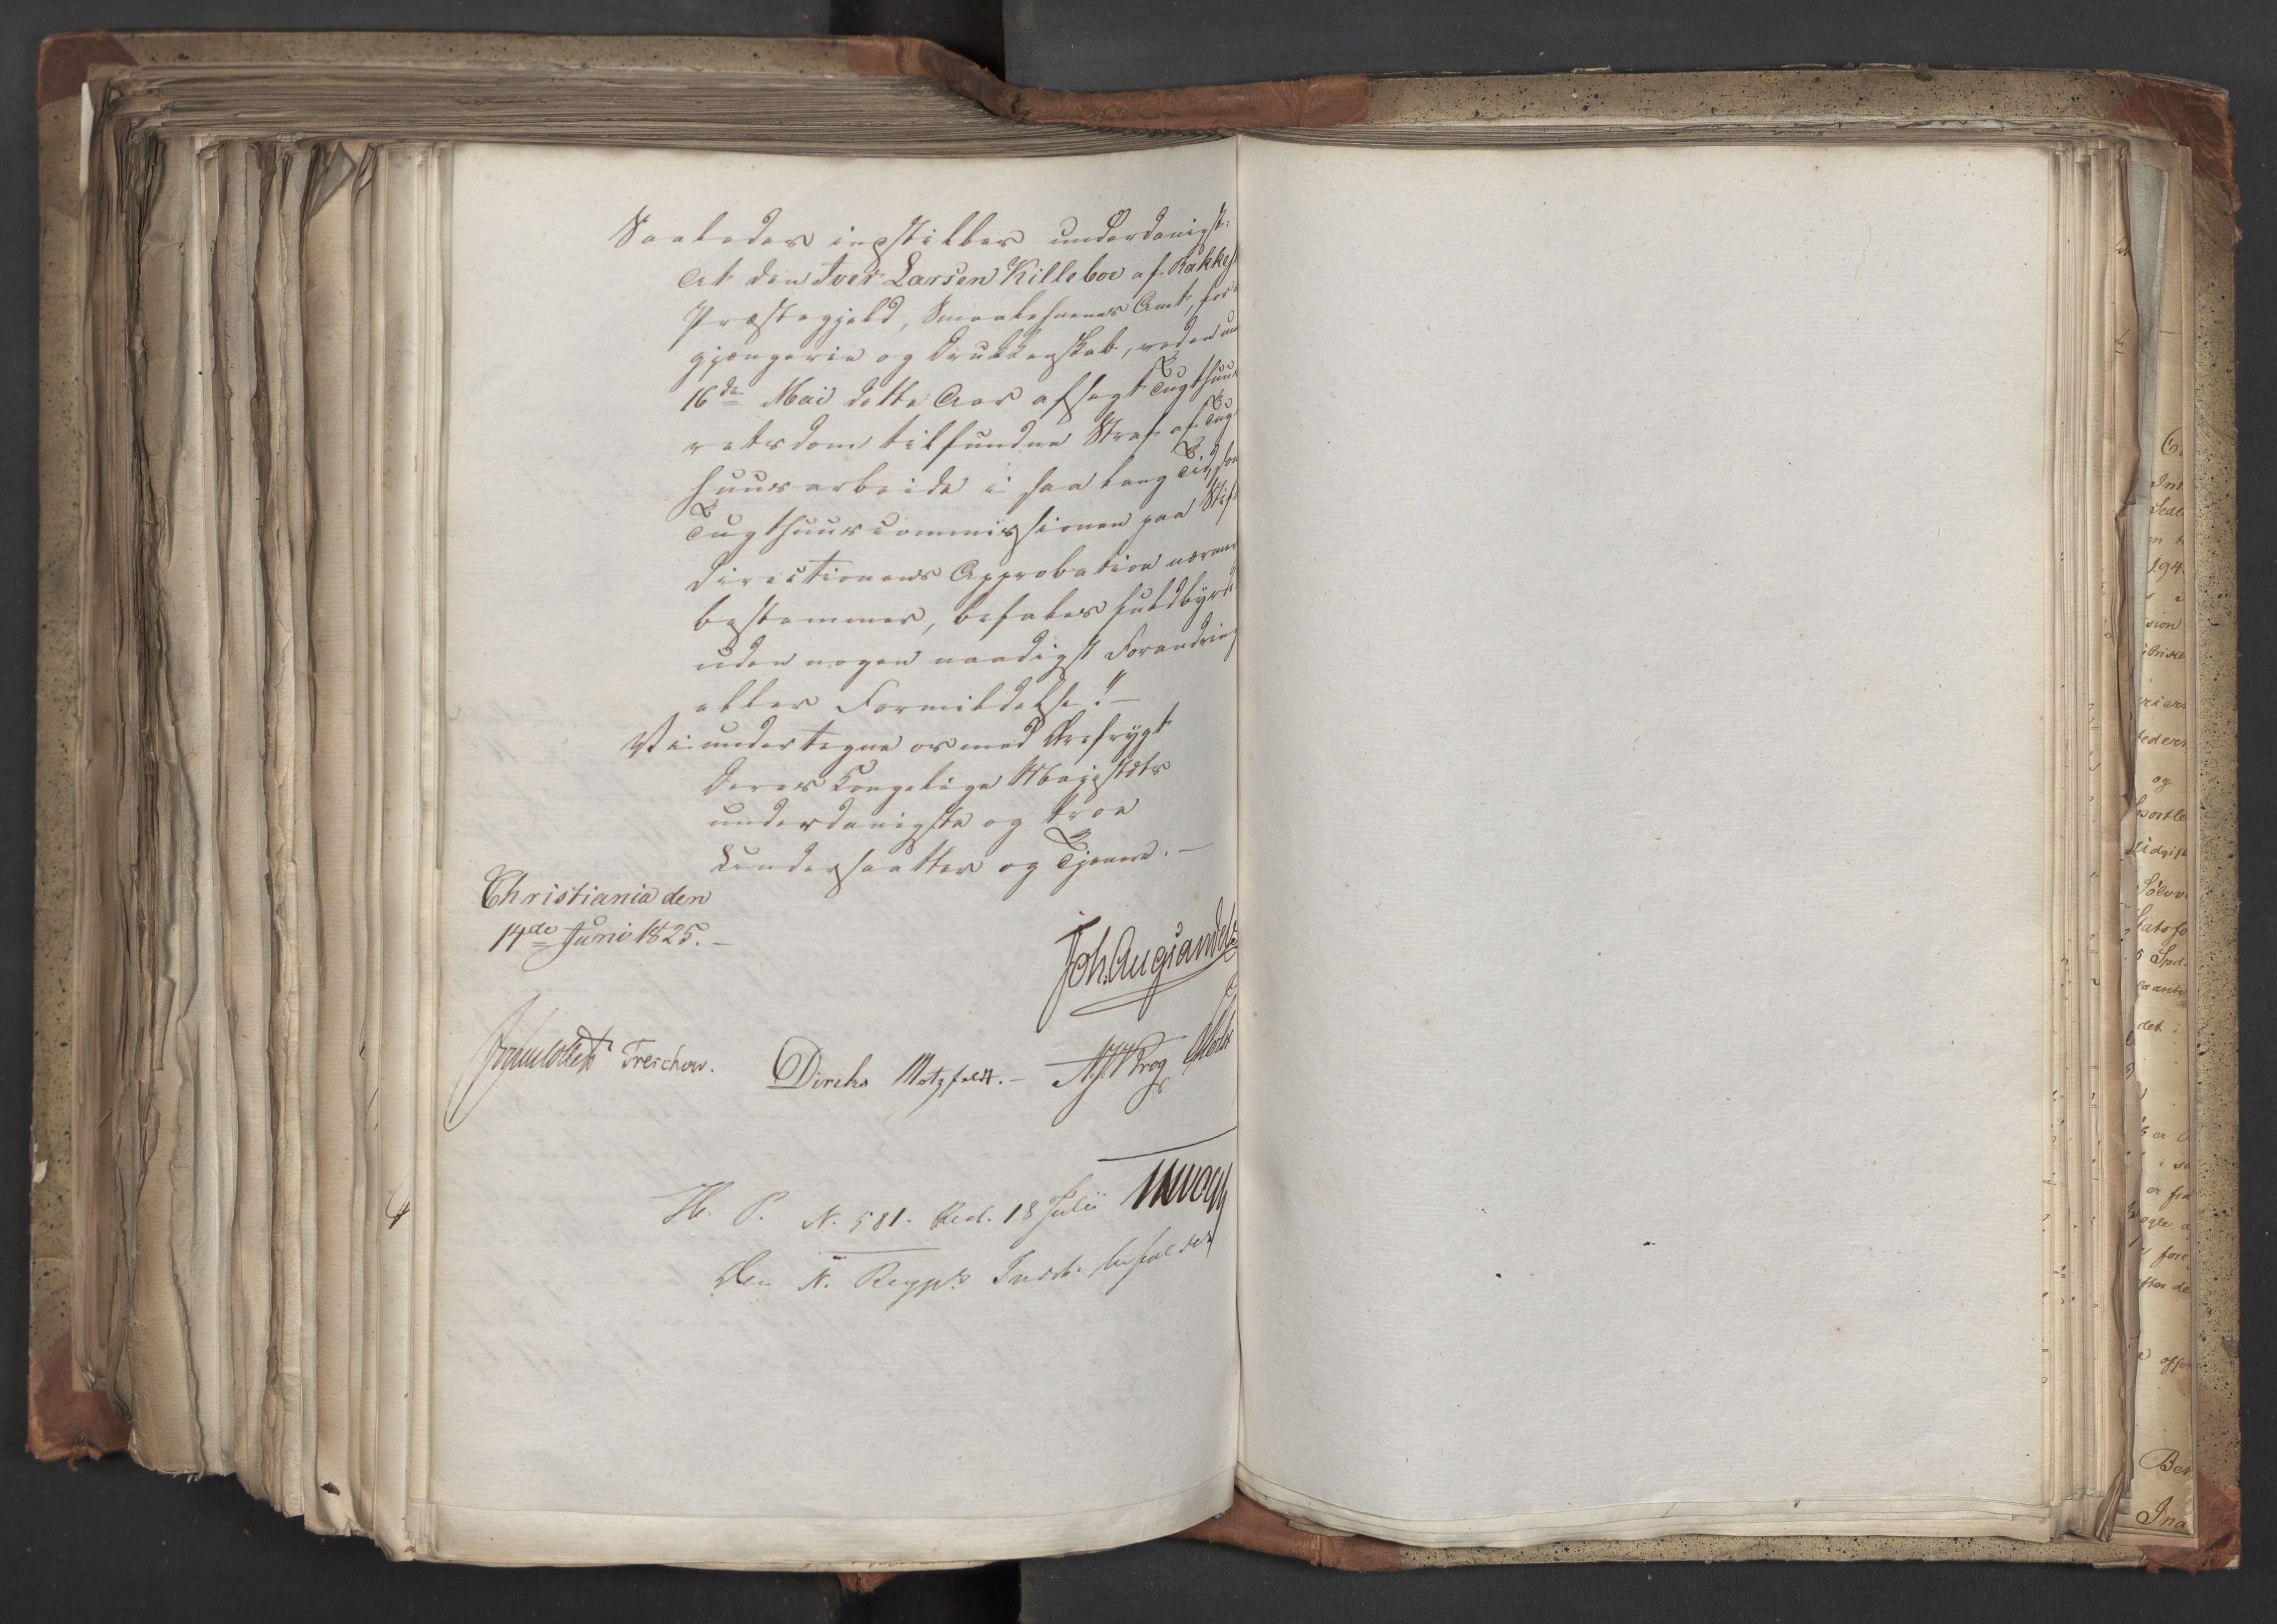 Saaledes indstilles underdanigst:
At den Iver Larsen Killeboe af Rakke
Præstegjeld, Smaalehnenes Amt, for
gjængerie og Drukkenskab, ved en
16de Mai dette Aar afsagt Tugthuus
retsdom tilfundne Straf af Tug
huusarbeide i saa lang Tid, som
Tugthuuscommissionen paa Stif
directionens Approbation nærmer
bestemmer, befales fuldbyrd
uden nogen naadigst Forandring
eller Formildelse." —
Vi undertegne os med Ærefrygt
Deres Kongelige Majestæts
underdanigste og troe
Undersaatter og Tjenere. —
Christiania den
14de Juni 1825. —
Joh. Aug. Sandels
Jonas Collett Treschow. Diriks Motzfeldt. — A. J. Krog
H. P. N. 581. Red. 18 Julii
Den N. Regjs Indst. befaldes
6.
Ind
Sede
194
sion
og
Sølvv
5 Spd.
det
er fra
ogle
fore
efter de
Ber
Ina